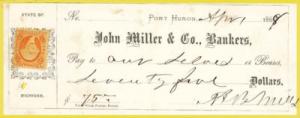 STATE OF
No. PORT HURON, Apr 1 1868
John Miller & Co., Bankers,
Pay to our selves or Bearer,
Seventy five Dollars.
MICHIGAN.
$ 75.00